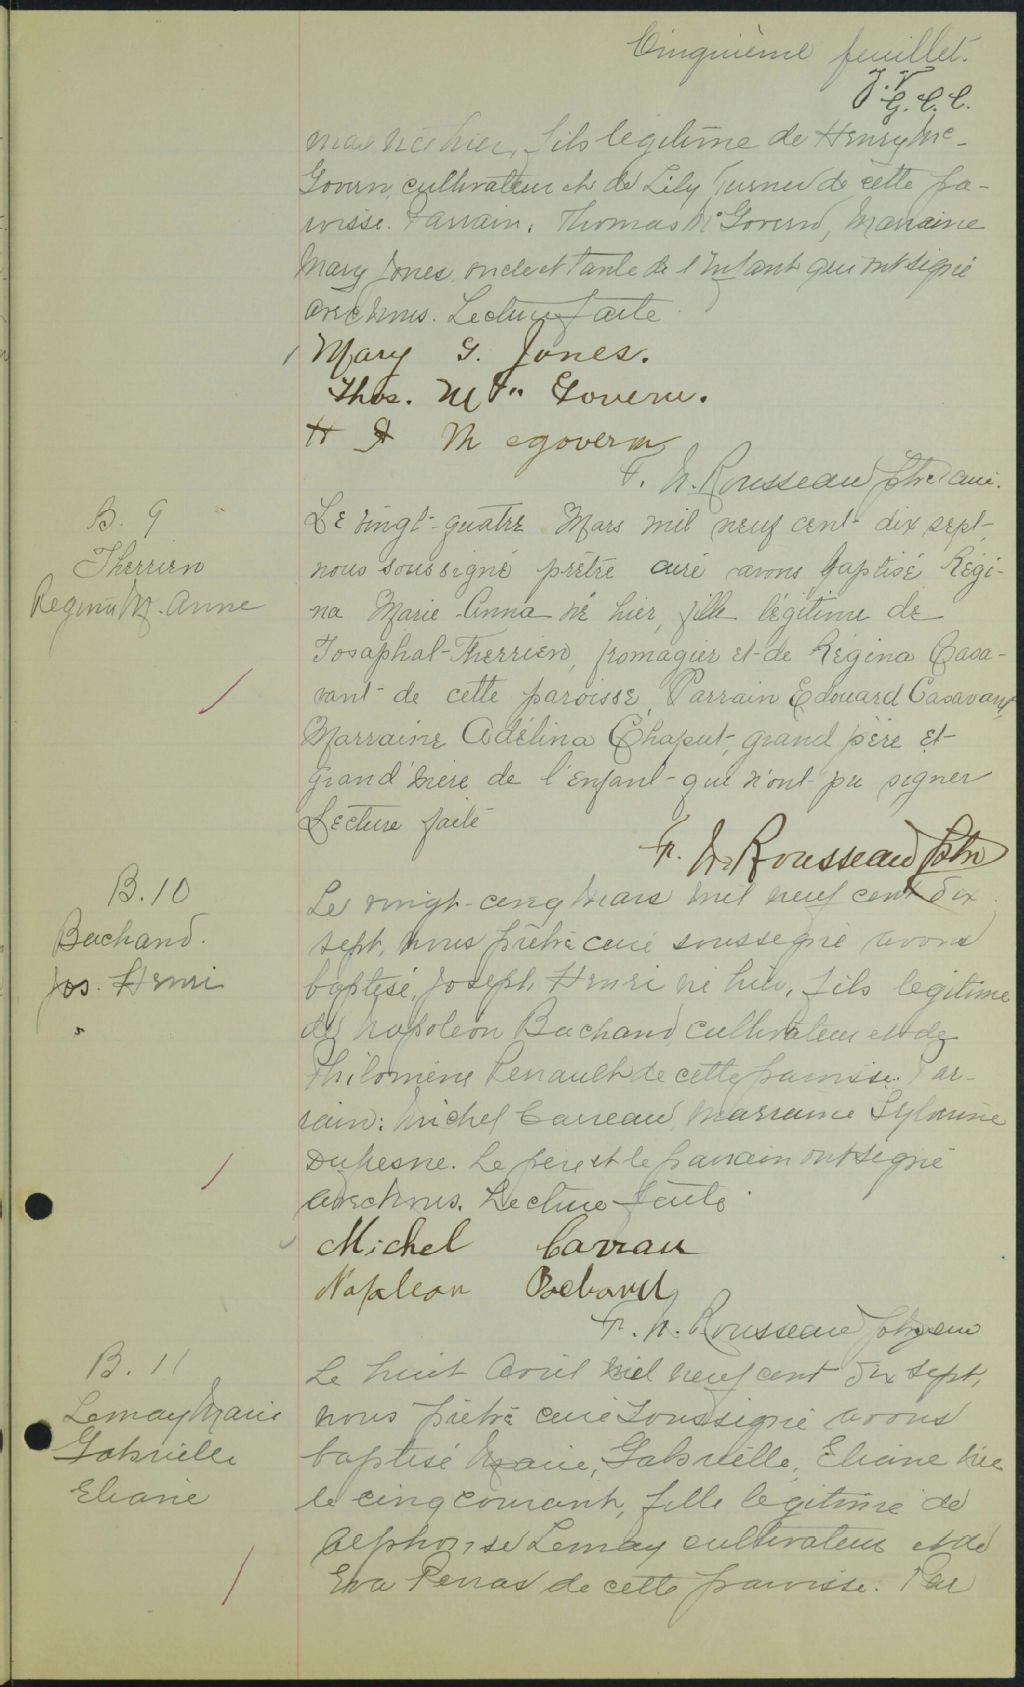 Cinquième feuillet.
J. V
G. C. C.
mas né hier, fils légitime de Henry Mc
Govern, cultivateur et de Lily Turner de cette pa-
roisse. Parrain, Thomas McGovern, Marraine
Mary Jones, oncle et tante de l'enfant qui ont signé
avec nous. Lecture faite
Mary G. Jones.
Thos. Mc Govern.
H Mcgovern
F. N. Rousseau ptre curé.
B. 9
Therrien
Regina M. Anne
Le vingt-quatre Mars mil neuf cent dix sept,
nous soussigné prêtre curé avons baptisé Régi-
na Marie-Anna né hier, fille légitime de
Josaphat Therrien, fromagier et de Régina Casa-
vant de cette paroisse, Parrain Edouard Casavant,
Marraine Adélina Chaput, grand père et
grand'mère de l'enfant qui n'ont pu signer
Lecture faite
F. N. Rousseau ptre
B. 10
Bachand.
Jos. Henri
Le vingt-cinq mars mil neuf cent dix
sept, nous prêtre curé soussigné avons
baptisé, Joseph, Henri né hier, fils légitime
de Napoléon Bachand, cultivateur et de
Philomène Renault de cette paroisse. Par-
rain: Michel Carreau, marraine Sylvinie
Dufresne. Le père et le parrain ont signé
avec nous. Lecture faite.
Michel Carrau
Napoleon Bachand
F. N. Rousseau ptre curé
B. 11
Lemay Marie
Gabrielle
Eliane
Le huit Avril mil neuf cent dix sept,
nous prêtre curé soussigné avons
baptisé Marie, Gabrielle, Eliane née
le cinq courant, fille légitime de
Alphonse Lemay cultivateur et de
Eva Perras de cette paroisse. Par